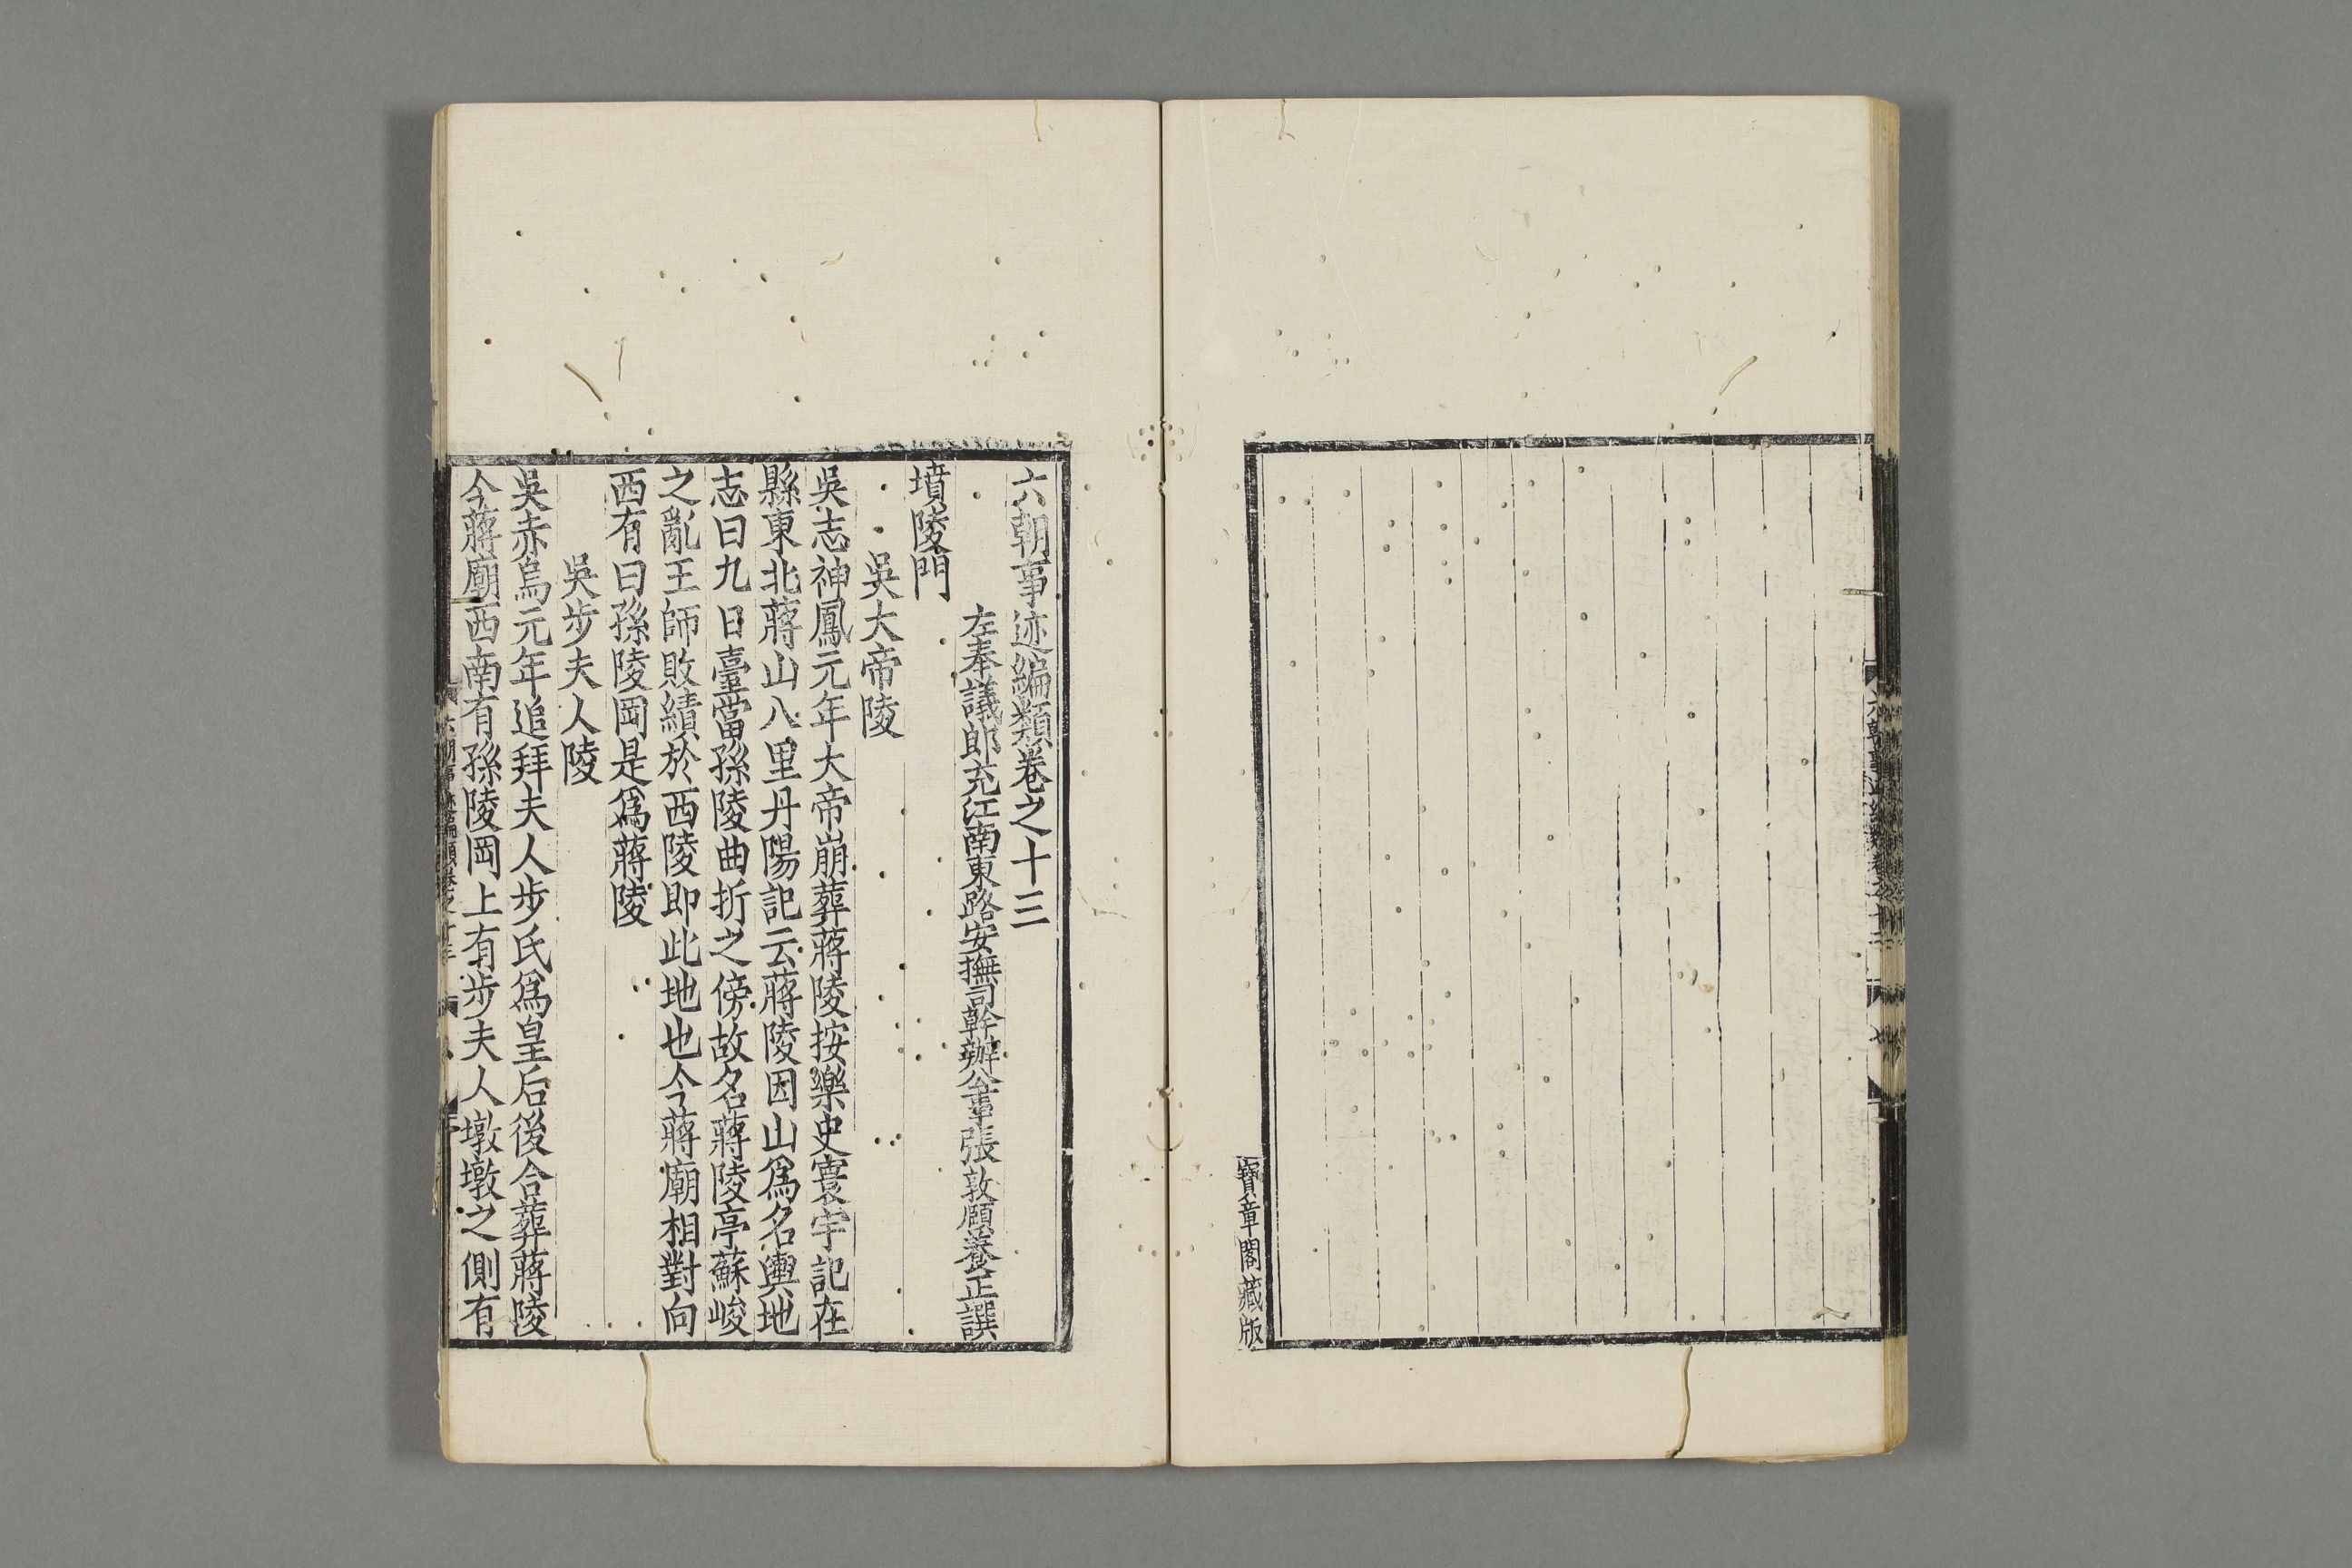 寶章閣藏版
六朝事迹編類卷之十三
左奉議郎充江南東路安撫司幹辦公事張敦頤養正譔
墳陵門
吳大帝陵
吳志神鳳元年大帝崩葬蔣陵按樂史寰宇記在
縣東北蔣山八里丹陽記云蔣陵因山爲名輿地
志曰九日臺當孫陵曲折之傍故名蔣陵亭蘇峻
之亂王師敗績於西陵即此地也今蔣廟相對向
西有曰孫陵岡是爲蔣陵
吳步夫人陵
吳赤烏元年追拜夫人步氏爲皇后後合葬蔣陵
今蔣廟西南有孫陵岡上有步夫人墩墩之側有